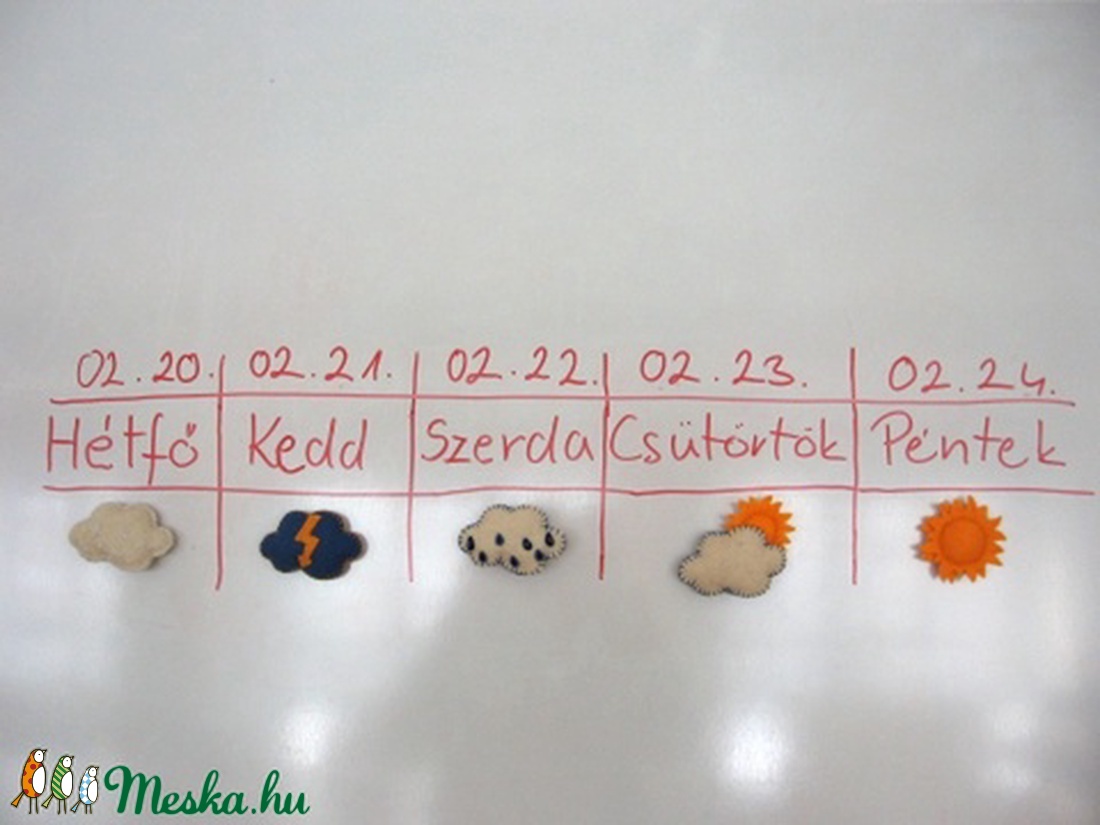 02.20. 02.21. 02.22. 02.23. 02.24.
Hétfő Kedd Szerda Csütörtök Péntek
Meska.hu